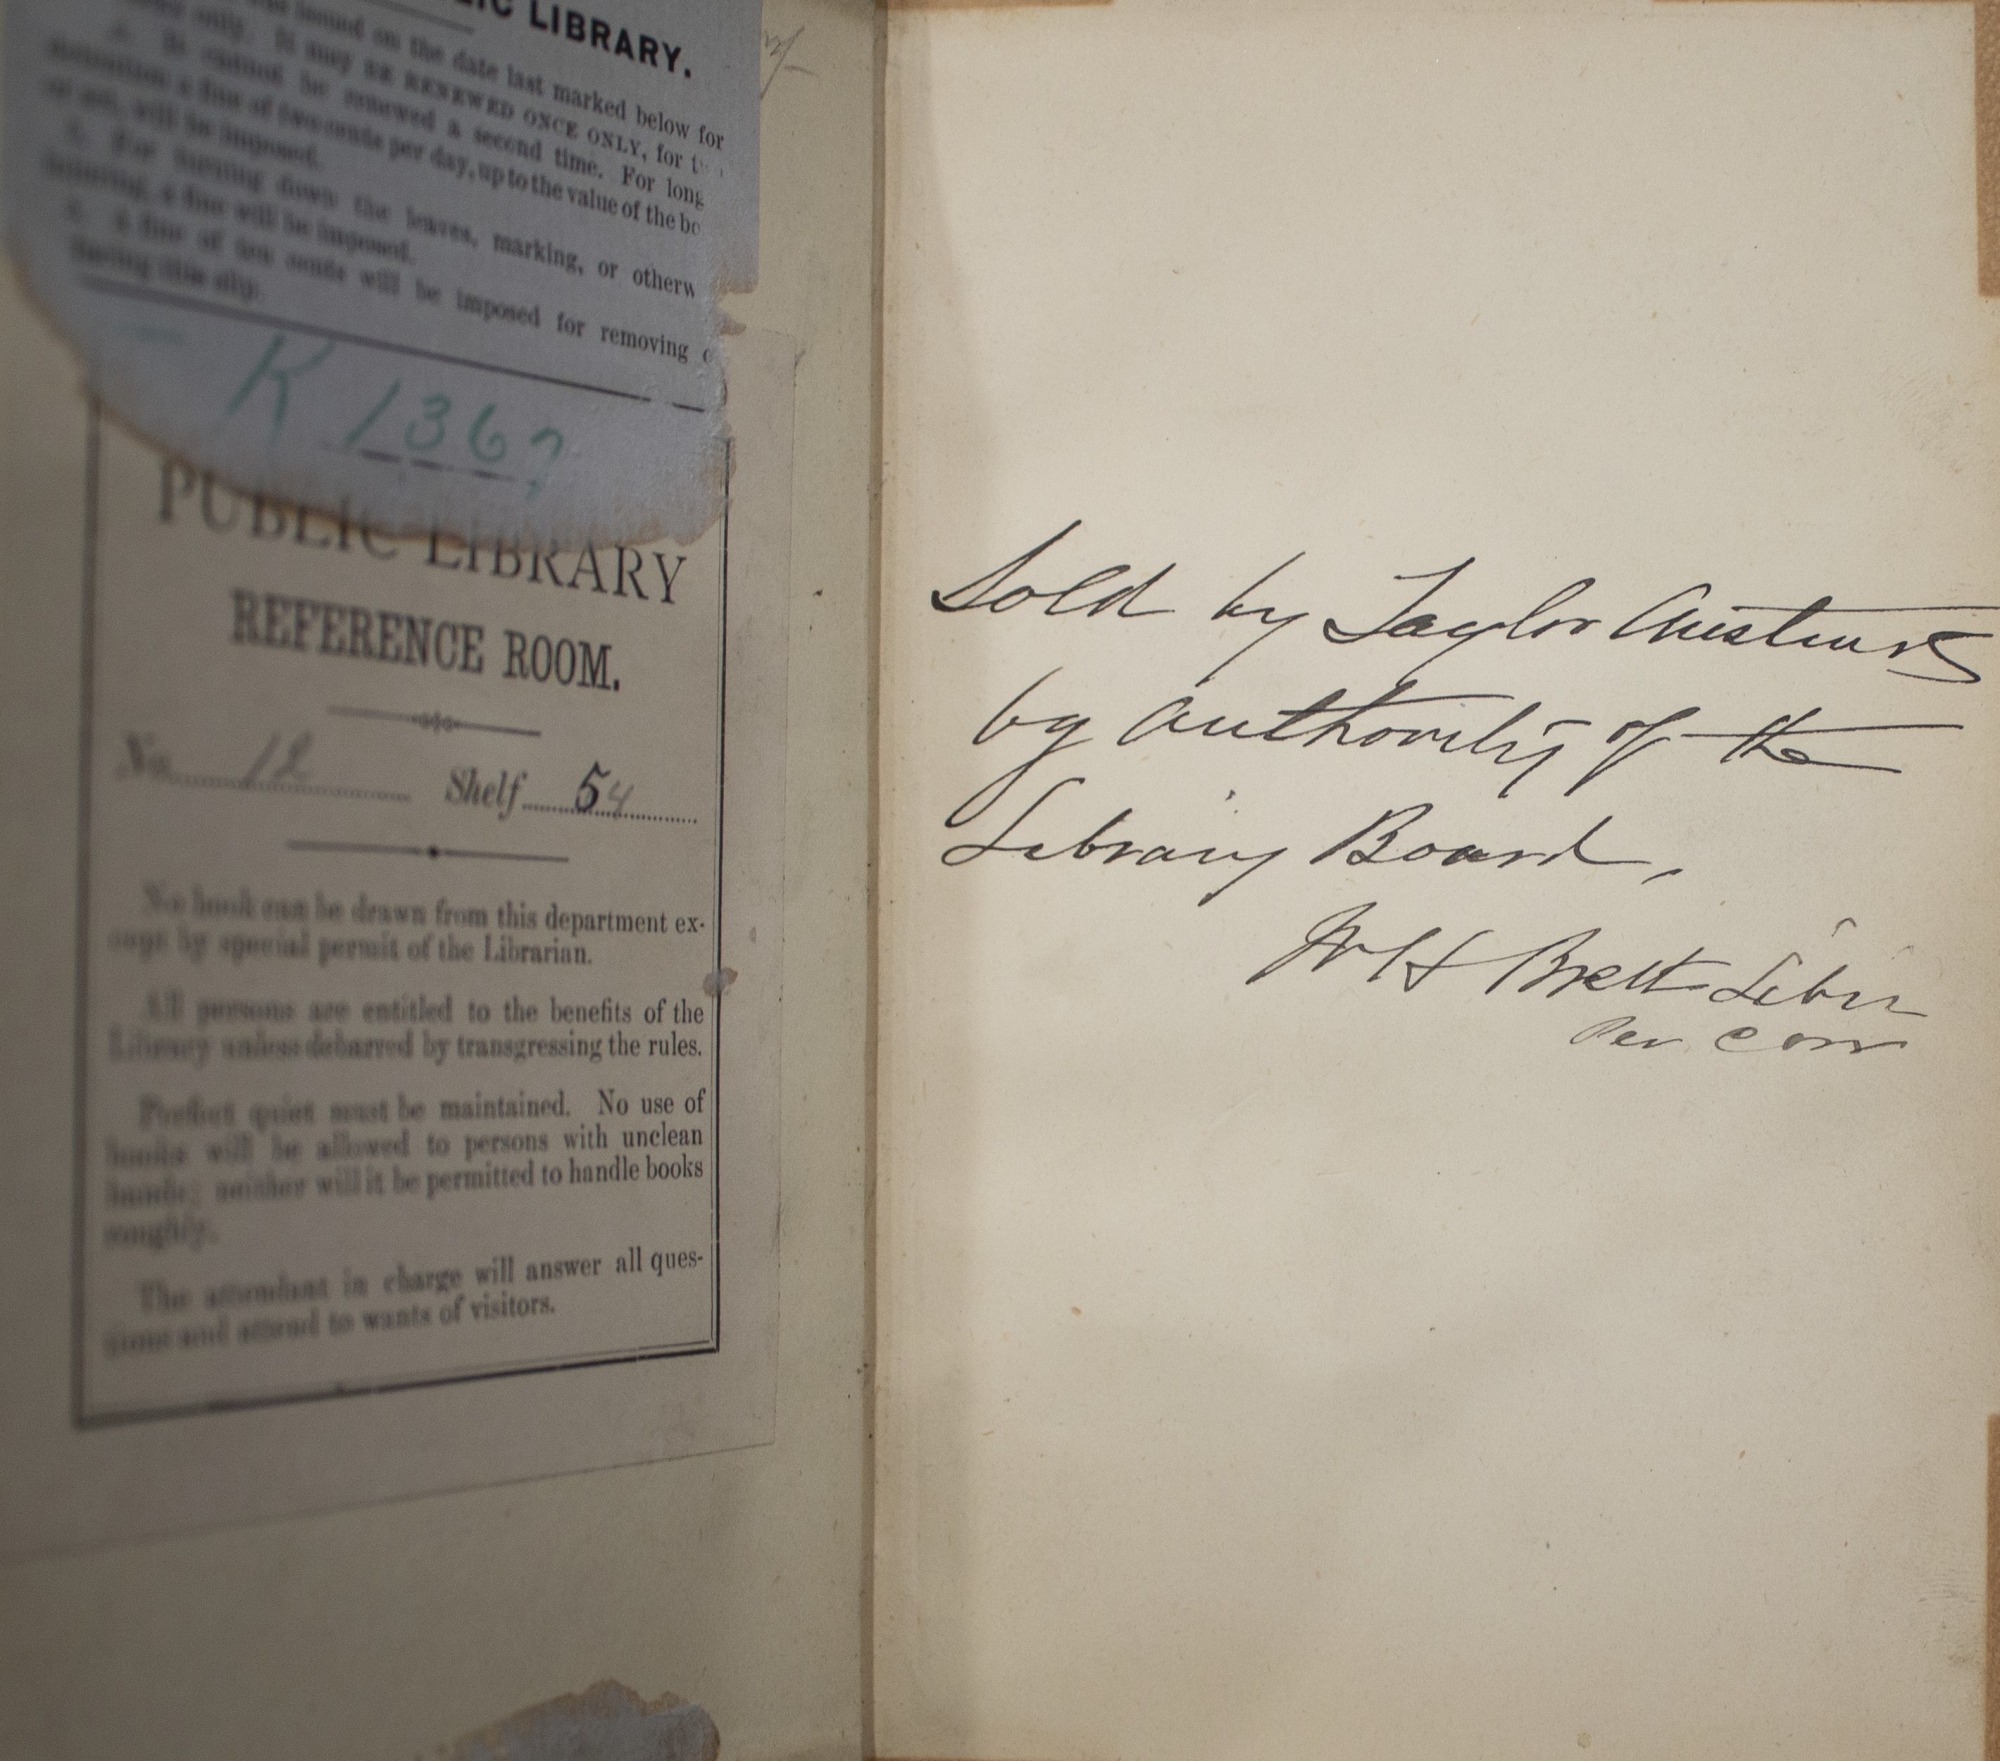 LIC LIBRARY.
issued on the date last marked below for
only. It may BE RENEWED ONCE ONLY, for t
It cannot be renewed a second time. For long
a fine of two cents per day, up to the value of the bo
will be imposed.
For turning down the leaves, marking, or otherw
a fine will be imposed.
A fine of ten cents will be imposed for removing o
this slip.
K 1367
PUBLIC LIBRARY
REFERENCE ROOM.
No. 12 Shelf 54
No book can be drawn from this department ex-
cept by special permit of the Librarian.
All persons are entitled to the benefits of the
Library unless debarred by transgressing the rules.
Perfect quiet must be maintained. No use of
books will be allowed to persons with unclean
hands; neither will it be permitted to handle books
roughly.
The attendant in charge will answer all ques-
tions and attend to wants of visitors.
Sold by Taylor Austin
by authority of the
Library Board,
W H Brett Libn
Per